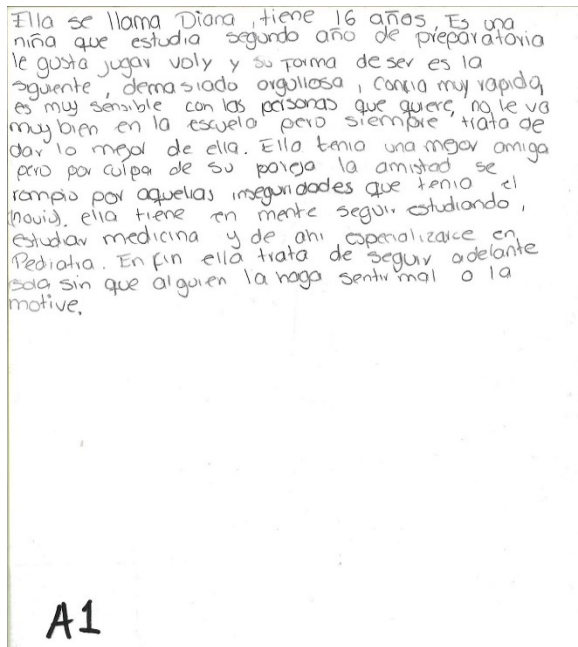 Ella se llama Diana, tiene 16 años, Es una
niña que estudia segundo año de preparatoria
le gusta jugar voly y su forma de ser es la
sguiente, demasiado orgullosa, confia muy rapido,
es muy sensible con las personas que quiere, no le va
muy bien en la escuela pero siempre, trata de
dar lo mejor de ella. Ella tenia una mejor amiga
pero por culpa de su pareja la amistad se
rompio por aquellas inseguridades que tenia el
ella tiene en mente seguir estudiando,
estudiar medicina y de ahi especializarce en
Pediatria. En fin ella trata de seguir adelante
sola sin que alguien la haga sentir mal o la
motive.
A1